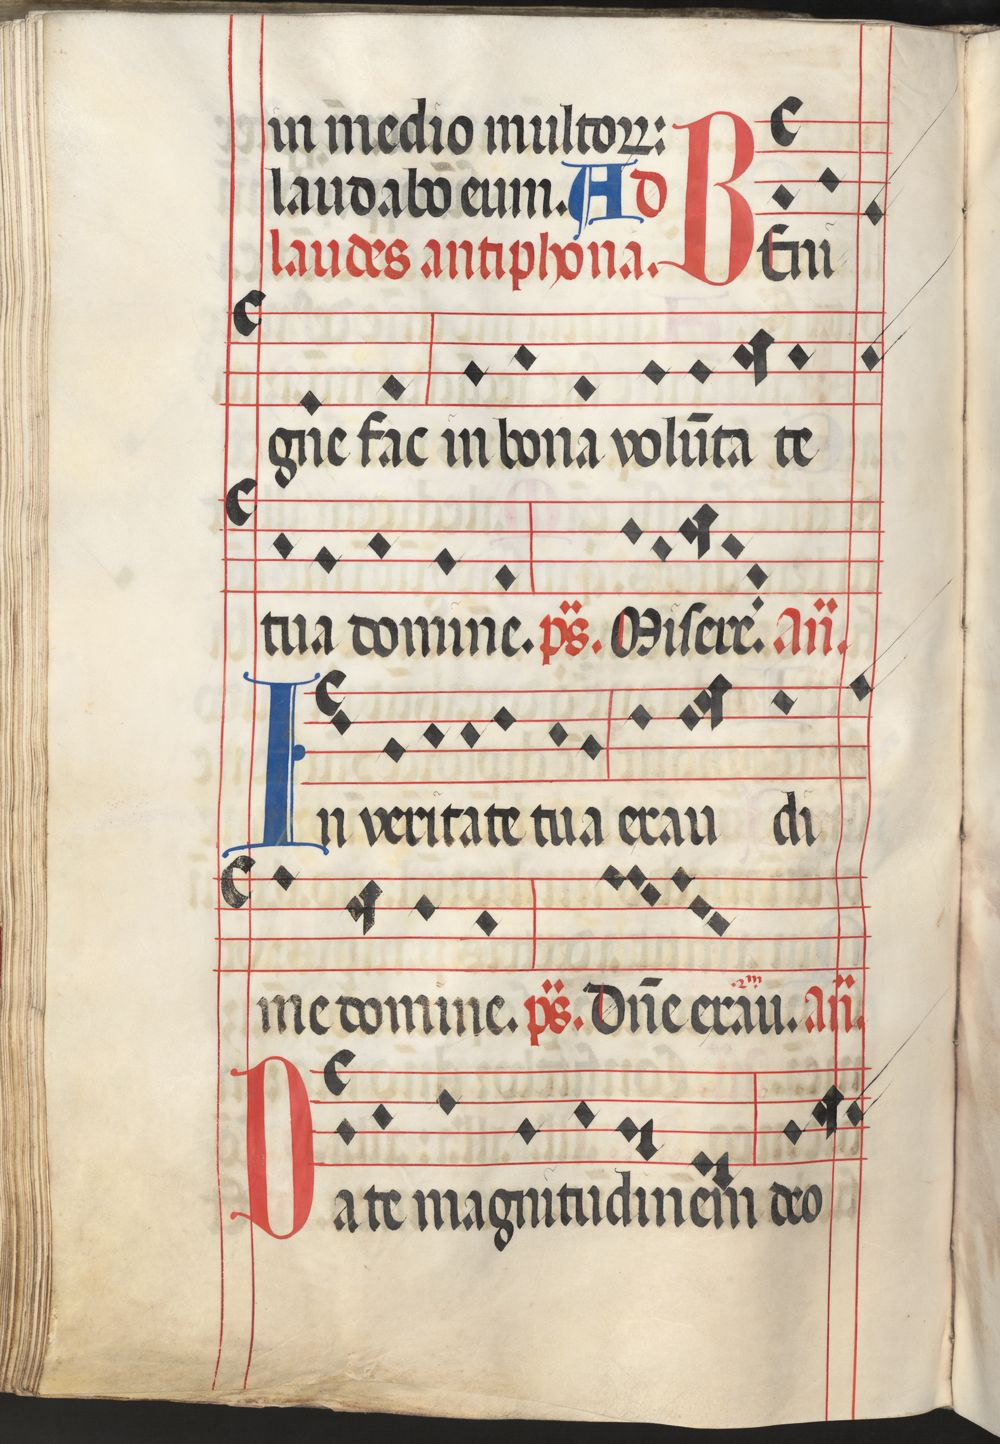 in medio multorꝝ:
laudabo eum. Ad
laudes antiphona. Beni
gne fac in bona volūta te
tua domine. ps̈. Misere. Añ.
In veritate tua exau di
me domine. ps̈. Dñe exāu. .2.m Añ.
Date magnitudinem deo